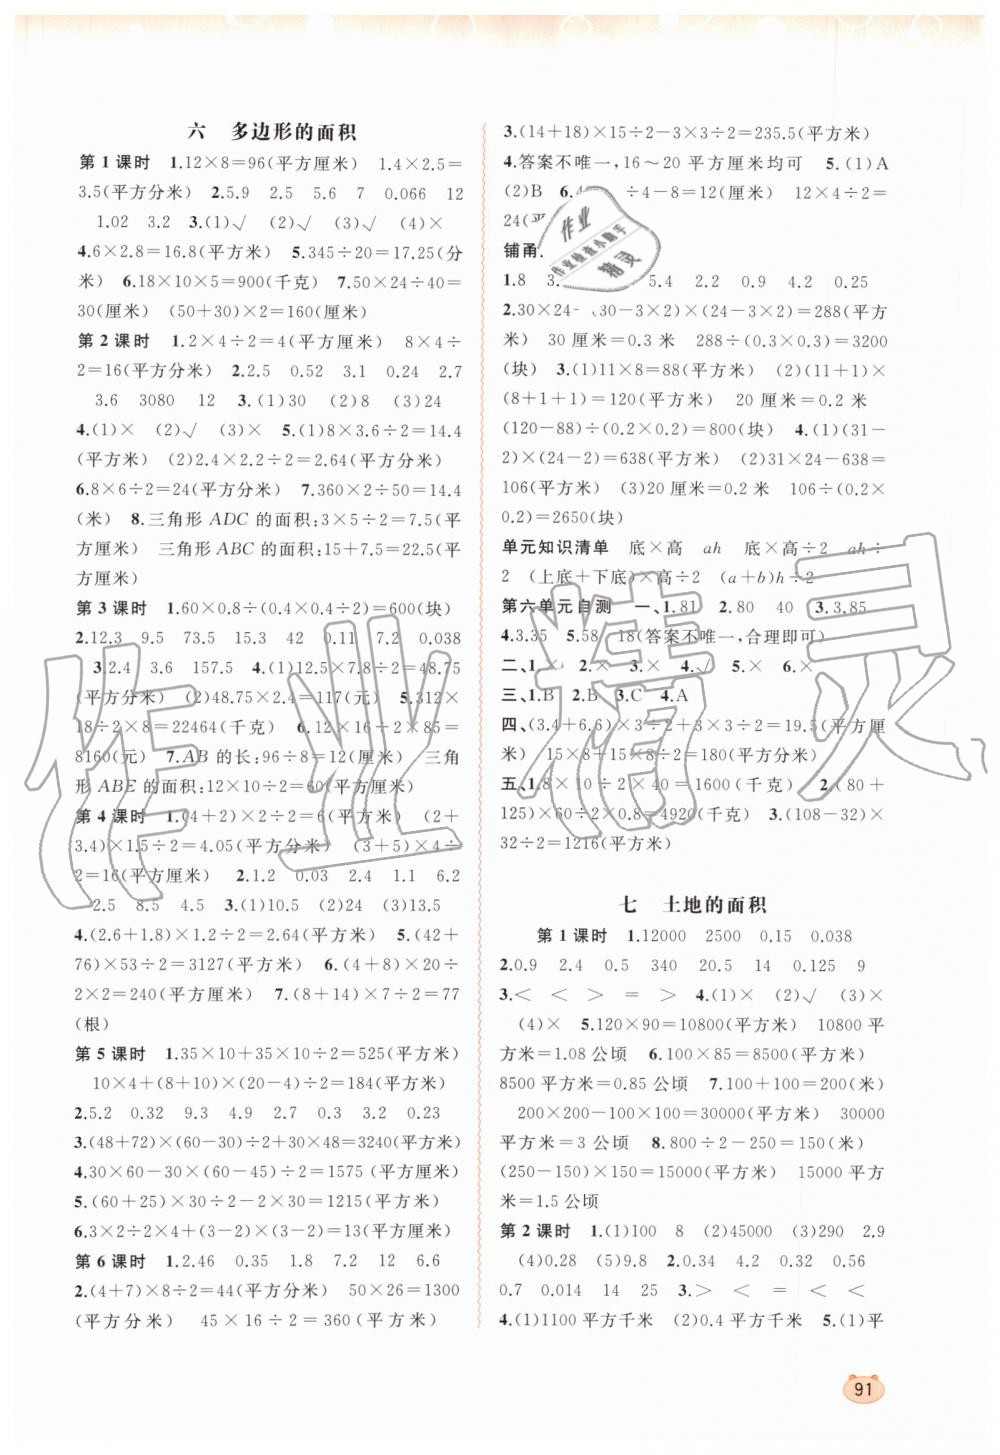 六 多边形的面积
第1课时 1.12×8=96(平方厘米) 1.4×2.5=
3.5(平方分米) 2.5.9 2.5 5.6 7 0.066 12
1.02 3.2 3.(1)√ (2)√ (3)√ (4)×
4.6×2.8=16.8(平方米) 5.345÷20=17.25(分
米) 6.18×10×5=900(千克) 7.50×24÷40=
30(厘米) (50+30)×2=160(厘米)
第2课时 1.2×4÷2=4(平方厘米) 8×4÷
2=16(平方分米) 2.2.5 0.52 3.1 0.24 2.7
3.6 3080 12 3.(1)30 (2)8 (3)24
4.(1)× (2)√ (3)× 5.(1)8×3.6÷2=14.4
(平方米) (2)2.4×2.2÷2=2.64(平方分米)
6.8×6÷2=24(平方分米) 7.360×2÷50=14.4
(米) 8.三角形ADC的面积:3×5÷2=7.5(平
方厘米) 三角形ABC的面积:15+7.5=22.5(平
方厘米)
第3课时 1.60×0.8÷(0.4×0.4÷2)=600(块)
2.12.3 9.5 73.5 15.3 42 0.11 7.2 0.038
3.2.4 3.6 157.5 4.(1)12.5×7.8÷2=48.75
(平方分米) (2)48.75×2.4=117(元) 5.312×
18÷2×8=22464(千克) 6.12×16÷2×85=
8160(元) 7.AB的长:96÷8=12(厘米) 三角
形ABE的面积:12×10÷2=60(平方厘米)
第4课时 1.(4+2)×2÷2=6(平方米) (2+
3.4)×1.5÷2=4.05(平方分米) (3+5)×4÷
2=16(平方厘米) 2.1.2 0.03 2.4 1.1 6.2
2.5 8.5 4.5 3.(1)10.5 (2)24 (3)13.5
4.(2.6+1.8)×1.2÷2=2.64(平方米) 5.(42+
76)×53÷2=3127(平方米) 6.(4+8)×20÷
2×2=240(平方厘米) 7.(8+14)×7÷2=77
(根)
第5课时 1.35×10+35×10÷2=525(平方米)
10×4+(8+10)×(20-4)÷2=184(平方米)
2.5.2 0.32 9.3 4.9 2.8 3.2 0.23
3.(48+72)×(60-30)÷2+30×48=3240(平方米)
4.30×60-30×(60-45)÷2=1575(平方厘米)
5.(60+25)×30÷2-2×30=1215(平方米)
6.3×2÷2×4+(3-2)×(3-2)=13(平方厘米)
第6课时 1.2.46 0.35 1.8 7.2 12 6.6
2.(4+7)×8÷2=44(平方分米) 50×26=1300
(平方分米) 45×16÷2=360(平方米)
3.(14+18)×15÷2-3×3÷2=235.5(平方米)
4.答案不唯一,16～20平方厘米均可 5.(1)A
(2)B 6. ÷4-8=12(厘米) 12×4÷2=
24(平
铺
1.8 3. 5.4 2.2 0.9 4.2 0.25
2.30×24- 30-3×2)×(24-3×2)=288(平方
米) 30厘米=0.3米 288÷(0.3×0.3)=3200
(块) 3.(1)11×8=88(平方米) (2)(11+1)×
(8+1+1)=120(平方米) 20厘米=0.2米
(120-88)÷(0.2×0.2)=800(块) 4.(1)(31-
2)×(24-2)=638(平方米) (2)31×24-638=
106(平方米) (3)20厘米=0.2米 106÷(0.2×
0.2)=2650(块)
单元知识清单 底×高 ah 底×高÷2 ah÷
2 (上底+下底)×高÷2 (a+b)h÷2
第六单元自测 一、1.81 2.80 40 3.3.85
4.3.35 5.58 18(答案不唯一,合理即可)
二、1.× 2.× 3.× 4.√ 5.× 6.×
三、1.B 2.B 3.C 4.A
四、(3.4+6.6)×3÷2+3×3÷2=19.5(平方厘
米) 15×8+15×8÷2=180(平方分米)
五、1.8×10÷2×40=1600(千克) 2.(80+
125)×60÷2×0.8=4920(千克) 3.(108-32)×
32÷2=1216(平方米)
七 土地的面积
第1课时 1.12000 2500 0.15 0.038
2.0.9 2.4 0.5 340 20.5 14 0.125 9
3.< < > = > 4.(1)× (2)√ (3)×
(4)× 5.120×90=10800(平方米) 10800平
方米=1.08公顷 6.100×85=8500(平方米)
8500平方米=0.85公顷 7.100+100=200(米)
200×200-100×100=30000(平方米) 30000
平方米=3公顷 8.800÷2-250=150(米)
(250-150)×150=15000(平方米) 15000平方
米=1.5公顷
第2课时 1.(1)100 8 (2)45000 (3)290 2.9
(4)0.28 (5)9.8 2.0.34 4.2 0.32 0.56
0.7 0.014 14 25 3.> < = < <
4.(1)1100平方千米 (2)0.4平方千米 5.(1)平
91
作业
作业检查小助手
精灵
作业精灵